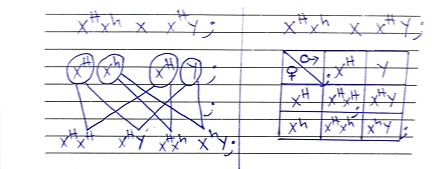 XᴴXʰ x XᴴY ;
Xᴴ Xʰ Xᴴ Y ;
;
XᴴXᴴ XᴴY XᴴXʰ XʰY ;
XᴴXʰ x XᴴY ;
♂ Xᴴ Y
♀ ;
Xᴴ XᴴXᴴ ; XᴴY
Xʰ XᴴXʰ XʰY ;